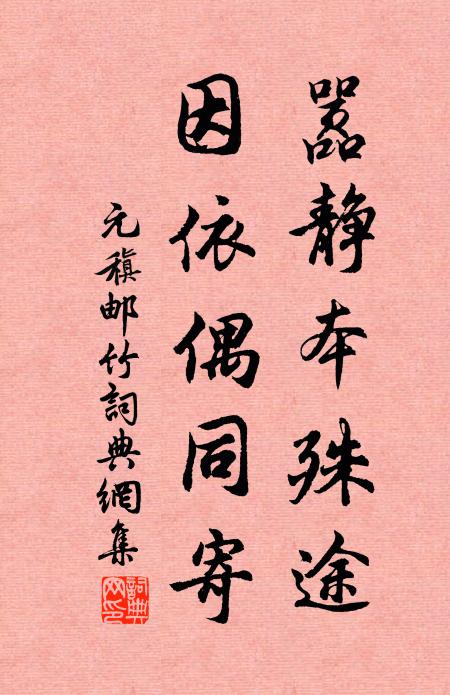 嚣静本殊途
因依偶同寄
元稹邮竹詞典網集
詞典网印